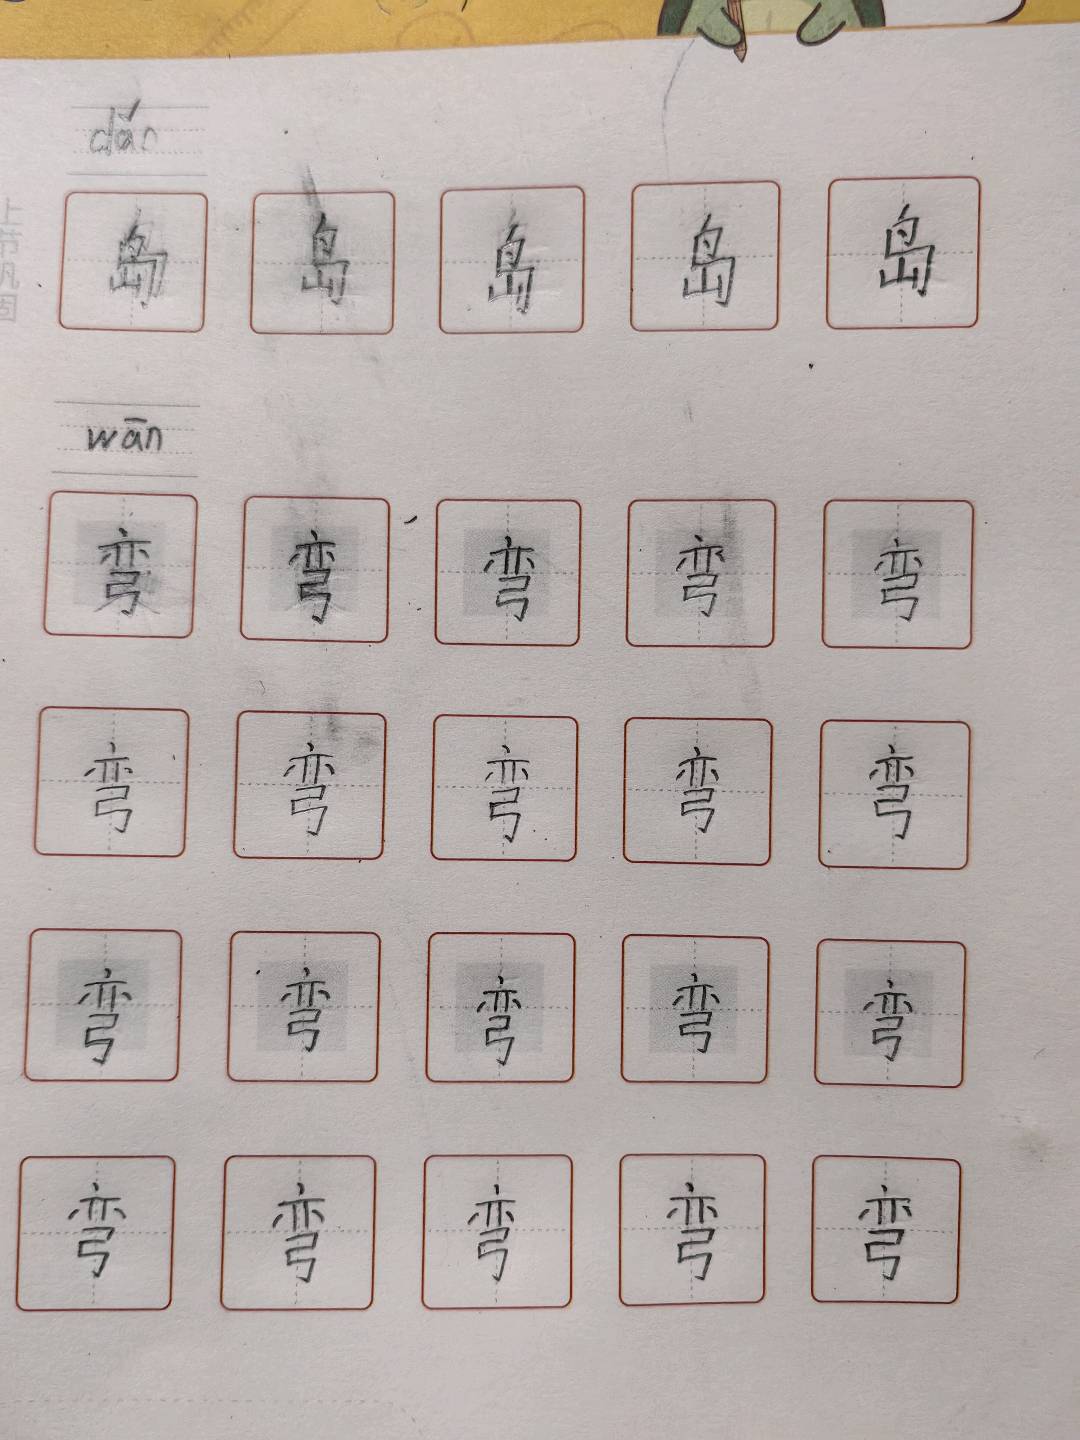 dǎo
上节巩固
岛 岛 岛 岛 岛
wān
弯 弯 弯 弯 弯
弯 弯 弯 弯 弯
弯 弯 弯 弯 弯
弯 弯 弯 弯 弯